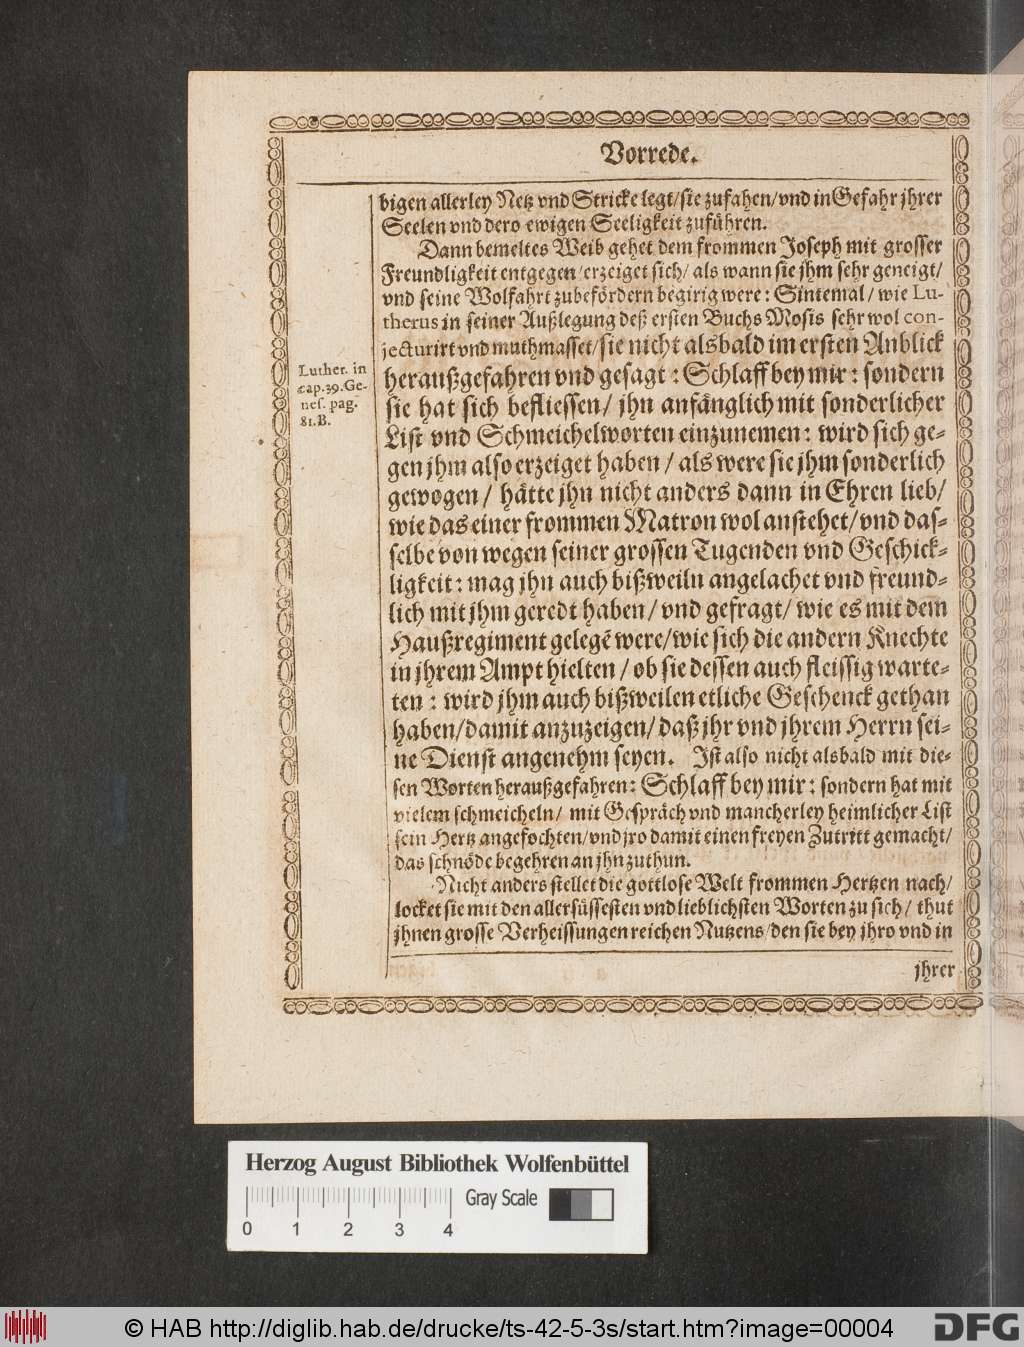 Vorrede.
bigen allerley Netz vnd Stricke legt/sie zufahen/vnd in Gefahr jhrer
Seelen vnd dero ewigen Seeligkeit zuführen.
Dann bemeltes Weib gehet dem frommen Joseph mit grosser
Freundligkeit entgegen/erzeiget sich/ als wann sie jhm sehr geneigt/
vnd seine Wolfahrt zubefördern begirig were: Sintemal/ wie Lu-
therus in seiner Außlegung deß ersten Buchs Mosis sehr wol con-
jecturirt vnd muthmasset/sie nicht alsbald im ersten Anblick
heraußgefahren vnd gesagt: Schlaff bey mir: sondern
sie hat sich befliessen/ jhn anfänglich mit sonderlicher
List vnd Schmeichelworten einzunemen: wird sich ge-
gen jhm also erzeiget haben/ als were sie jhm sonderlich
gewogen/ hätte jhn nicht anders dann in Ehren lieb/
wie das einer frommen Matron wol anstehet/vnd das-
selbe von wegen seiner grossen Tugenden vnd Geschick-
ligkeit: mag jhn auch bißweiln angelachet vnd freund-
lich mit jhm geredt haben/ vnd gefragt/ wie es mit dem
Haußregiment gelegẽ were/wie sich die andern Knechte
in jhrem Ampt hielten/ ob sie dessen auch fleissig warte-
ten: wird jhm auch bißweilen etliche Geschenck gethan
haben/damit anzuzeigen/ daß jhr vnd jhrem Herrn sei-
ne Dienst angenehm seyen. Ist also nicht alsbald mit die-
sen Worten heraußgefahren: Schlaff bey mir: sondern hat mit
vielem schmeicheln/ mit Gespräch vnd mancherley heimlicher List
sein Hertz angefochten/vnd jro damit einen freyen Zutritt gemacht/
das schnöde begehren an jhn zuthun.
Nicht anders stellet die gottlose Welt frommen Hertzen nach/
locket sie mit den allersüssesten vnd lieblichsten Worten zu sich/ thut
jhnen grosse Verheissungen reichen Nutzens/den sie bey jhro vnd in
jhrer
Luther. in
cap. 39. Ge-
nes. pag.
81. B.
Herzog August Bibliothek Wolfenbüttel
Gray Scale
0 1 2 3 4
© HAB http://diglib.hab.de/drucke/ts-42-5-3s/start.htm?image=00004
DFG